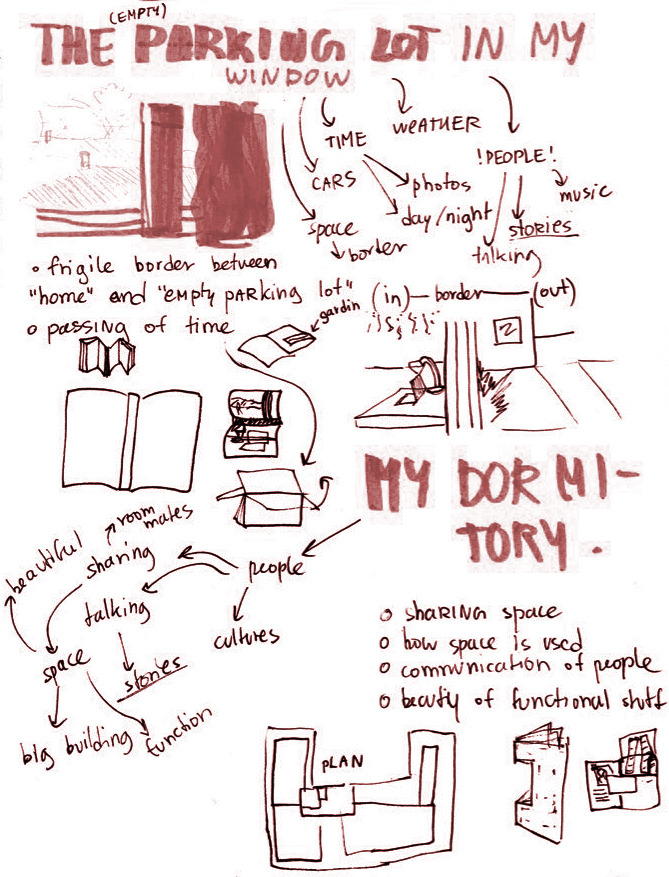 (EMPTY)
THE PARKING LOT IN MY
WINDOW
TIME
WEATHER
!PEOPLE!
CARS
photos
music
space
day/night
stories
border
talking
frigile border between
"home" and "empty parking lot"
passing of time
gardin
(in) border (out)
MY DORMI-
TORY.
room mates
beautiful
sharing
people
talking
cultures
space
stories
big building
function
sharing space
how space is used
communication of people
beauty of functional stuff
PLAN